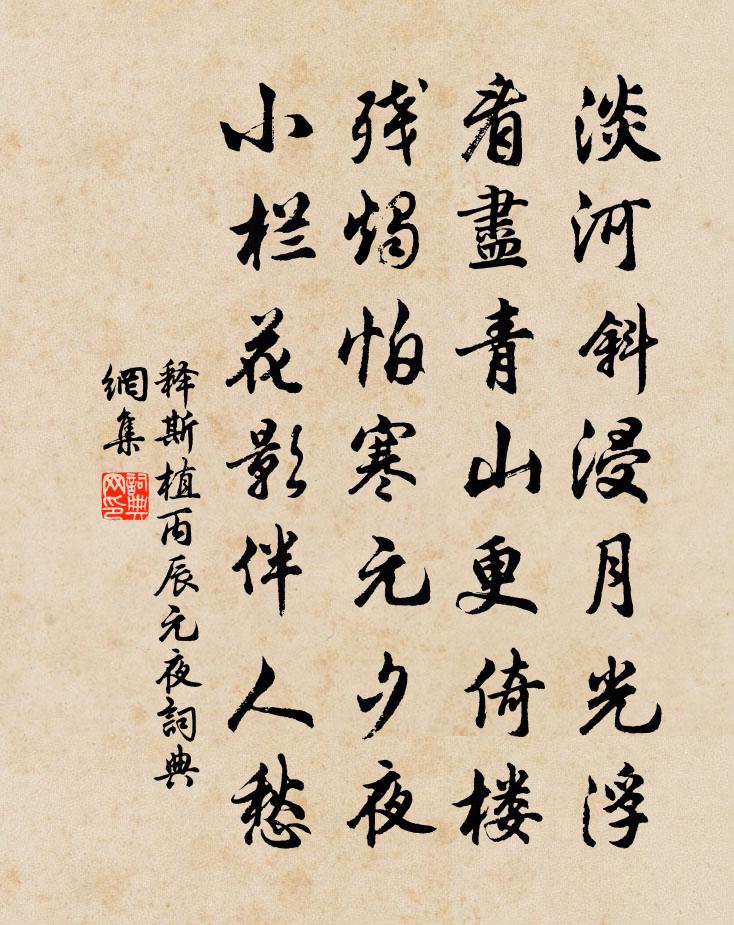 淡河斜浸月光浮
看盡青山更倚楼
残烛怕寒元夕夜
小栏花影伴人愁
释斯植丙辰元夜詞典
網集
詞典网印